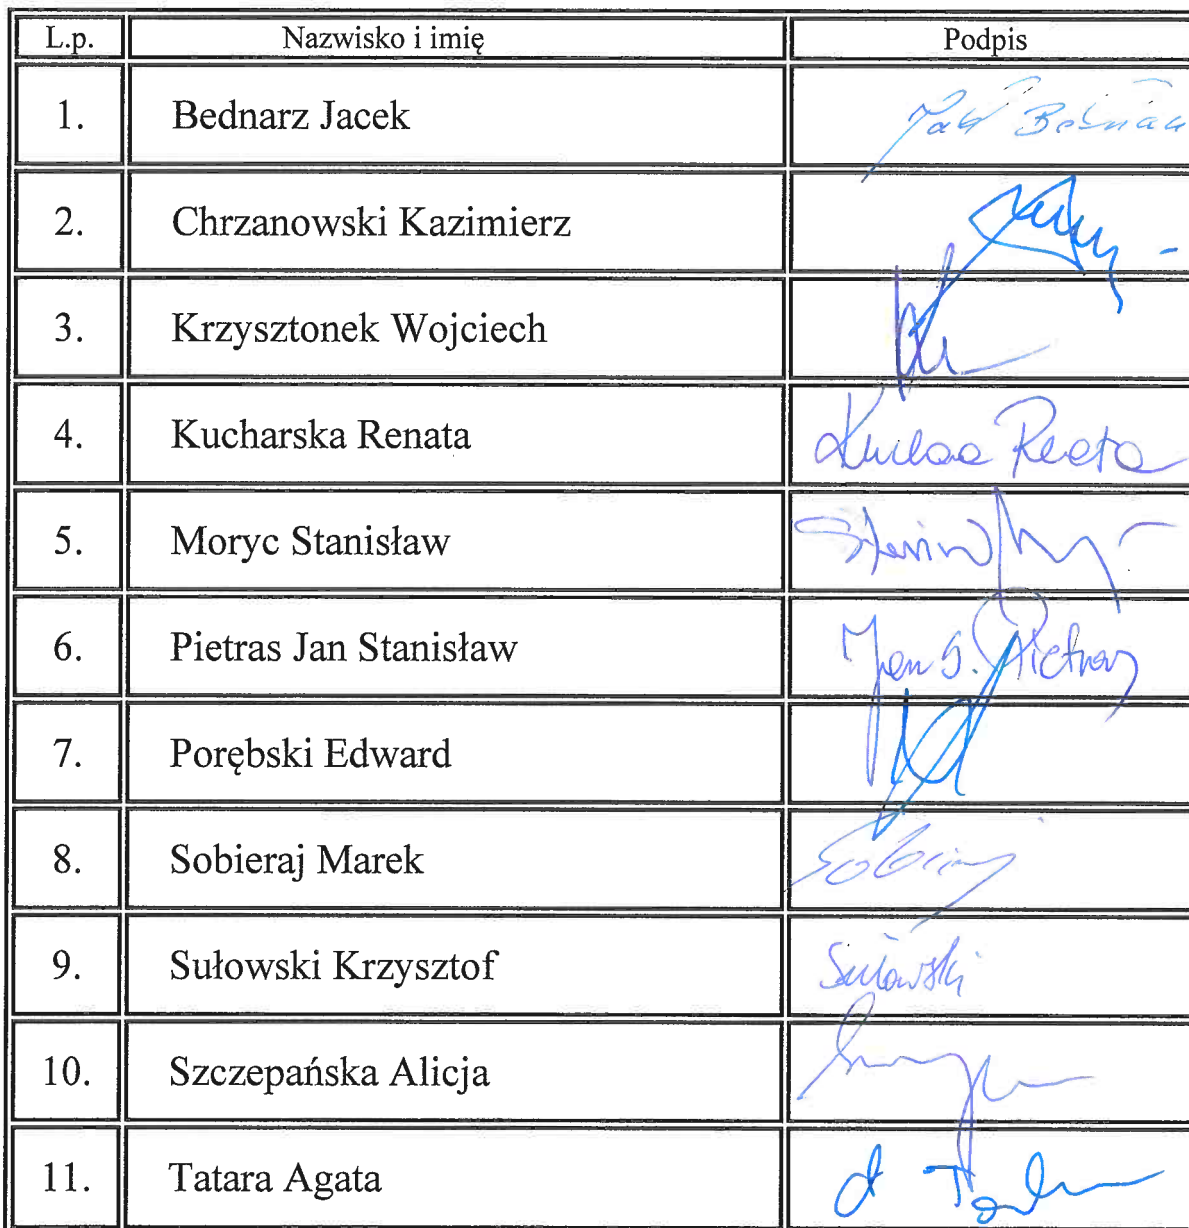 L.p. Nazwisko i imię Podpis
1. Bednarz Jacek
2. Chrzanowski Kazimierz
3. Krzysztonek Wojciech
4. Kucharska Renata
5. Moryc Stanisław
6. Pietras Jan Stanisław Jan S. Pietras
7. Porębski Edward
8. Sobieraj Marek
9. Sułowski Krzysztof Sułowski
10. Szczepańska Alicja
11. Tatara Agata